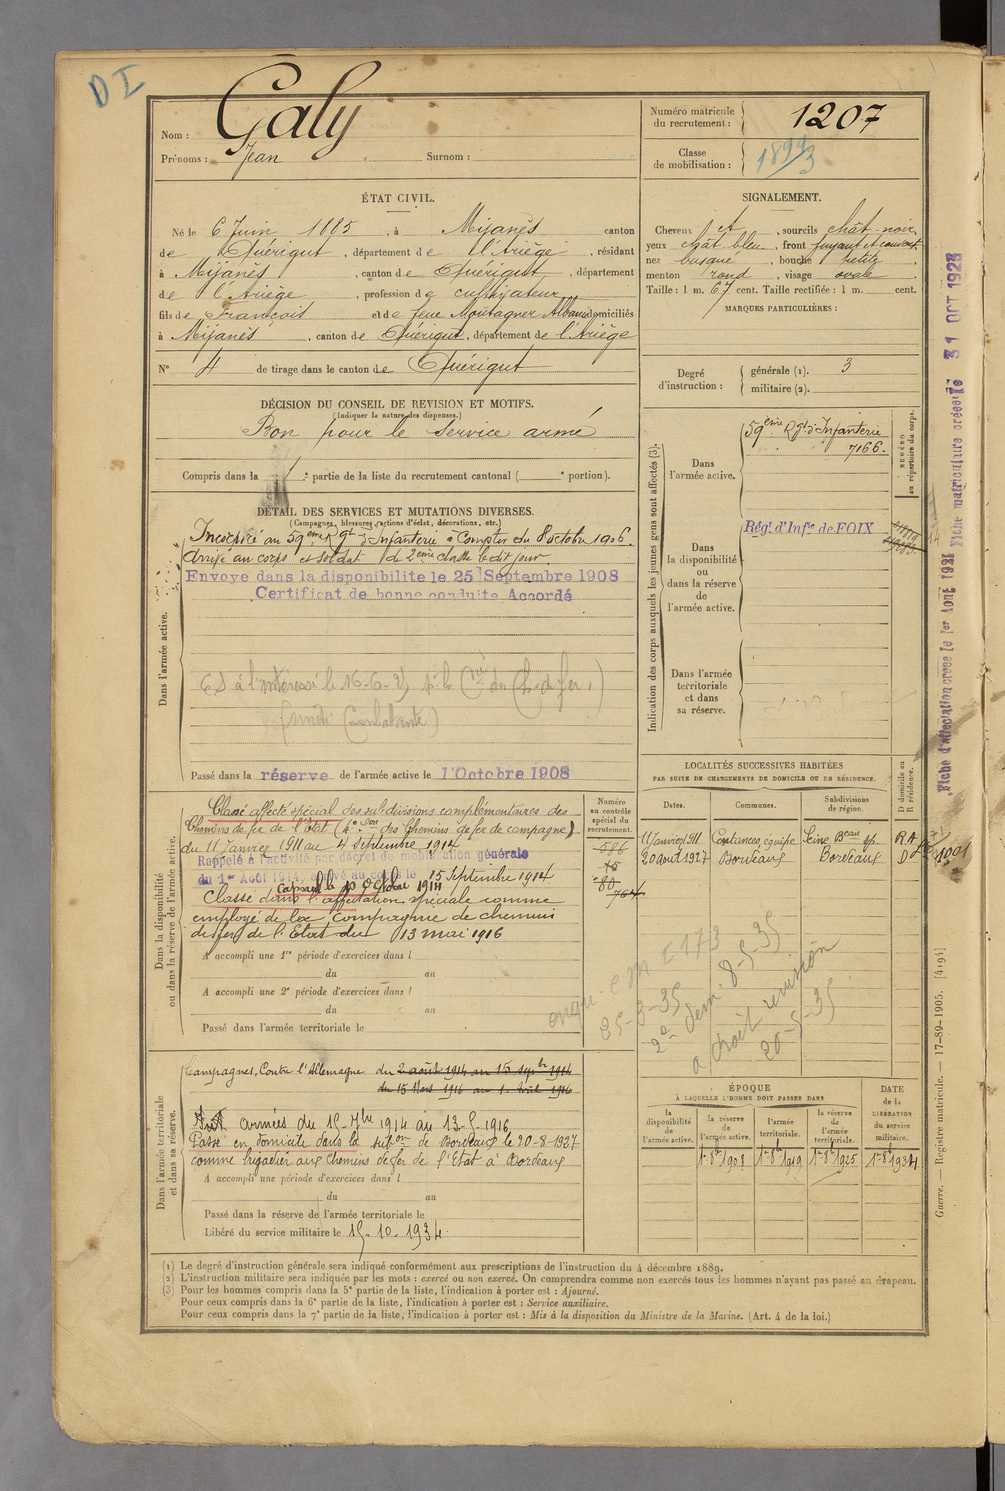 D I
Nom : Galy
Prénoms : Jean Surnom :
Numéro matricule du recrutement : 1207
Classe de mobilisation : 1899/3
ÉTAT CIVIL.
Né le 6 Juin 1885, à Mijanès canton
de Quérigut, département de l'Ariège, résidant
à Mijanès, canton de Quérigut, département
de l'Ariège, profession de cultivateur
fils de François et de feue Montagner Albanie domiciliés
à Mijanès, canton de Quérigut, département de l'Ariège
N° 4 de tirage dans le canton de Quérigut
SIGNALEMENT.
Cheveux ct, sourcils chât-noir,
yeux chât bleu, front fuyant et couvert
nez busqué, bouche petite,
menton rond, visage ovale
Taille : 1 m. 67 cent. Taille rectifiée : 1 m. cent.
MARQUES PARTICULIÈRES :
Degré d'instruction : générale (1). 3
militaire (2).
DÉCISION DU CONSEIL DE REVISION ET MOTIFS.
(Indiquer la nature des dispenses.)
Bon pour le service armé
Compris dans la e partie de la liste du recrutement cantonal ( e portion).
DÉTAIL DES SERVICES ET MUTATIONS DIVERSES.
(Campagnes, blessures, actions d'éclat, décorations, etc.)
Dans l'armée active.
Incorporé au 59ème Rgt d'Infanterie à Compter du 8 octobre 1906.
Arrivé au corps et soldat de 2ème classe le dit jour.
Envoyé dans la disponibilité le 25 Septembre 1908
Certificat de bonne conduite Accordé
à l'intéressé le 16-6-
Passé dans la réserve de l'armée active le 1 Octobre 1908
Indication des corps auxquels les jeunes gens sont affectés (3).
NUMÉRO au répertoire du corps.
Dans l'armée active.
59ème Rgt d'Infanterie
7166.
Dans la disponibilité ou dans la réserve de l'armée active.
Régt d'Infie de FOIX
Dans l'armée territoriale et dans sa réserve.
Dans la disponibilité ou dans la réserve de l'armée active.
Classé affecté spécial des subdivisions complémentaires des
Chemins de fer de l'Etat (4e Son des Chemins de fer de campagne)
du 11 janvier 1911 au 4 septembre 1914
Rappelé à l'activité par décret de mobilisation générale
du 1er Août 1914, arrivé au corps le 15 Septembre 1914
Caporal le 10 Octobre 1914
Classé dans l'affectation spéciale comme
employé de la Compagnie de chemins
de fer de l'Etat du 13 mai 1916
A accompli une 1re période d'exercices dans l
du au
A accompli une 2e période d'exercices dans l
du au
Passé dans l'armée territoriale le
Numéro au contrôle spécial du recrutement.
586
15
80
764
LOCALITÉS SUCCESSIVES HABITÉES
PAR SUITE DE CHANGEMENTS DE DOMICILE OU DE RÉSIDENCE.
Dates. Communes. Subdivisions de région. D domicile ou R résidence.
11 janvier 1911 Coutances, équipe Seine Beau sp. RA
20 aout 1927 Bordeaux Bordeaux D
25-3-35
2e dem. 8-5-35
a droit revision
20-5-35
Dans l'armée territoriale et dans sa réserve.
Campagnes, Contre l'Allemagne du 2 août 1914 au 15 Septbre 1914
du 15 Mars 1916 au 1 Août 1916
Aux armées du 15-7bre 1914 au 13-5-1916
Passé en domicile dans la subon de Bordeaux le 20-8-1927
comme brigadier aux chemins de fer de l'Etat à Bordeaux
A accompli une période d'exercices dans l
du au
Passé dans la réserve de l'armée territoriale le
Libéré du service militaire le 15-10-1934.
ÉPOQUE
A LAQUELLE L'HOMME DOIT PASSER DANS
la disponibilité de l'armée active.
la réserve de l'armée active.
l'armée territoriale.
la réserve de l'armée territoriale.
DATE de la LIBÉRATION du service militaire.
1er 8b 1908 1er 8b 1919 1er 8b 1925 1er 8b 1934
(1) Le degré d'instruction générale sera indiqué conformément aux prescriptions de l'instruction du 4 décembre 1889.
(2) L'instruction militaire sera indiquée par les mots : exercé ou non exercé. On comprendra comme non exercés tous les hommes n'ayant pas passé au drapeau.
(3) Pour les hommes compris dans la 5e partie de la liste, l'indication à porter est : Ajourné.
Pour ceux compris dans la 6e partie de la liste, l'indication à porter est : Service auxiliaire.
Pour ceux compris dans la 7e partie de la liste, l'indication à porter est : Mis à la disposition du Ministre de la Marine. (Art. 4 de la loi.)
Fiche d'affectation créée le 1er Août 1921
Fiche matriculaire créée le 31 OCT 1928
Guerre. — Registre matricule. — 17-89-1905. [4194]